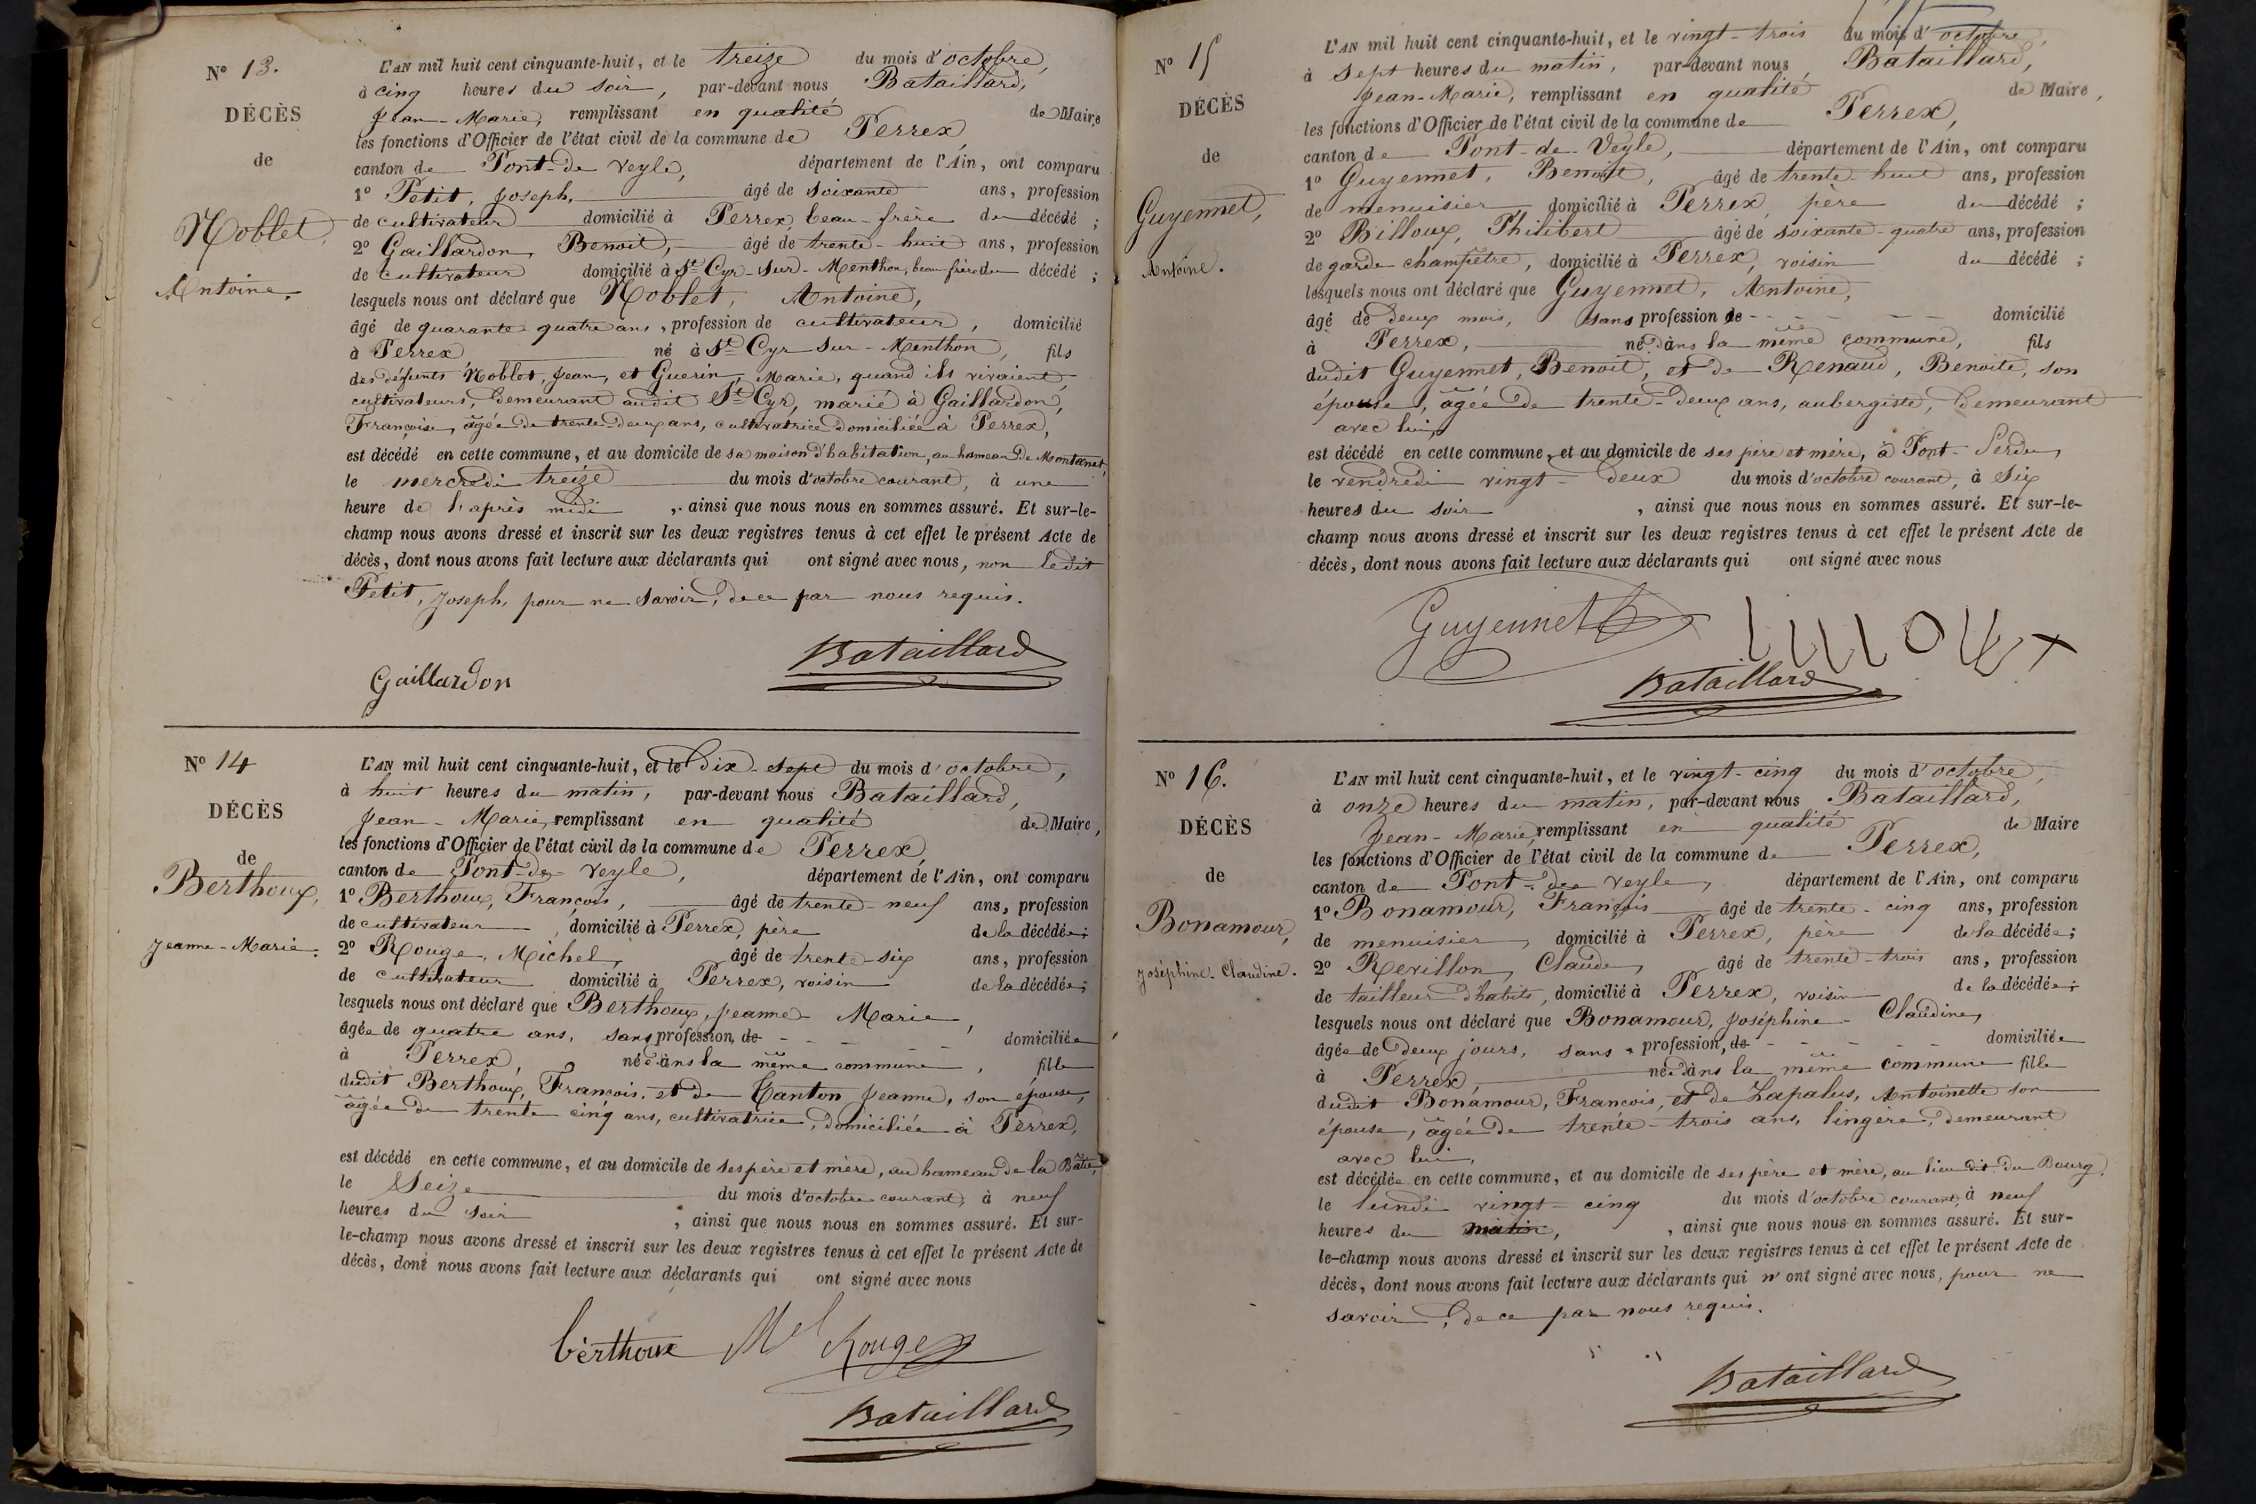 N° 13.
DÉCÈS
de
Noblet,
Antoine.
L'AN mil huit cent cinquante-huit, et le treize du mois d'octobre,
à cinq heures du soir, par-devant nous Bataillard,
Jean-Marie, remplissant en qualité de Maire
les fonctions d'Officier de l'état civil de la commune de Perrex,
canton de Pont-de veyle, département de l'Ain, ont comparu
1° Petit, Joseph, âgé de soixante ans, profession
de cultivateur domicilié à Perrex, beau-frère du décédé ;
2° Gaillardon, Benoit, âgé de trente-huit ans, profession
de cultivateur domicilié à St Cyr-sur-Menthon, beau frère du décédé ;
lesquels nous ont déclaré que Noblet, Antoine,
âgé de quarante quatre ans, profession de cultivateur, domicilié
à Perrex né à St Cyr sur-Menthon, fils
des défunts Noblet, Jean, et Guerin, Marie, quand ils vivaient,
cultivateurs, demeurant audit St Cyr, marié à Gaillardon,
Françoise, âgée de trente-deux ans, cultivatrice domiciliée à Perrex,
est décédé en cette commune, et au domicile de sa maison d'habitation, au hameau de Montanet,
le mercredi treize du mois d'octobre courant, à une
heure de l'après midi, ainsi que nous nous en sommes assuré. Et sur-le-
champ nous avons dressé et inscrit sur les deux registres tenus à cet effet le présent Acte de
décès, dont nous avons fait lecture aux déclarants qui ont signé avec nous, non ledit
Petit, Joseph, pour ne savoir, de ce par nous requis.
Bataillard
Gaillardon
N° 14
DÉCÈS
de
Berthoux,
Jeanne-Marie.
L'AN mil huit cent cinquante-huit, et le dix-sept du mois d'octobre,
à huit heures du matin, par-devant nous Bataillard,
Jean-Marie, remplissant en qualité de Maire,
les fonctions d'Officier de l'état civil de la commune de Perrex,
canton de Pont-de veyle, département de l'Ain, ont comparu
1° Berthoux, François, âgé de trente-neuf ans, profession
de cultivateur, domicilié à Perrex, père de la décédée ;
2° Rouge, Michel, âgé de trente six ans, profession
de cultivateur domicilié à Perrex, voisin de la décédée ;
lesquels nous ont déclaré que Berthoux, Jeanne-Marie,
âgée de quatre ans, sans profession, de - - - - domiciliée
à Perrex, née dans la même commune, fille
dudit Berthoux, François, et de Canton Jeanne, son épouse,
âgée de trente cinq ans, cultivatrice, domiciliée à Perrex,
est décédé en cette commune, et au domicile de ses père et mère, au hameau de la Bâtie,
le Seize du mois d'octobre courant, à neuf
heures du soir, ainsi que nous nous en sommes assuré. Et sur-
le-champ nous avons dressé et inscrit sur les deux registres tenus à cet effet le présent Acte de
décès, dont nous avons fait lecture aux déclarants qui ont signé avec nous
berthoux Mel Rouge
Bataillard
N° 15
DÉCÈS
de
Guyennet,
Antoine.
L'AN mil huit cent cinquante-huit, et le vingt-trois du mois d'octobre,
à sept heures du matin, par-devant nous, Bataillard,
Jean-Marie, remplissant en qualité de Maire,
les fonctions d'Officier de l'état civil de la commune de Perrex,
canton de Pont-de-Veyle, département de l'Ain, ont comparu
1° Guyennet, Benoît, âgé de trente-huit ans, profession
de menuisier domicilié à Perrex, père du décédé ;
2° Billoux, Philibert âgé de soixante-quatre ans, profession
de garde champêtre, domicilié à Perrex, voisin du décédé ;
lesquels nous ont déclaré que Guyennet, Antoine,
âgé de deux mois, sans profession de - - - - domicilié
à Perrex, né dans la même commune, fils
dudit Guyennet, Benoit, et de Renaud, Benoite, son
épouse, âgée de trente-deux ans, aubergiste, demeurant
avec lui,
est décédé en cette commune, et au domicile de ses père et mère, à Pont-Perdu,
le vendredi vingt-deux du mois d'octobre courant, à six
heures du soir, ainsi que nous nous en sommes assuré. Et sur-le-
champ nous avons dressé et inscrit sur les deux registres tenus à cet effet le présent Acte de
décès, dont nous avons fait lecture aux déclarants qui ont signé avec nous
Guyennet
Bataillard
N° 16.
DÉCÈS
de
Bonamour,
Joséphine-Claudine.
L'AN mil huit cent cinquante-huit, et le vingt-cinq du mois d'octobre,
à onze heures du matin, par-devant nous Bataillard,
Jean-Marie, remplissant en qualité de Maire
les fonctions d'Officier de l'état civil de la commune de Perrex,
canton de Pont-de veyle, département de l'Ain, ont comparu
1° Bonamour, François âgé de trente-cinq ans, profession
de menuisier, domicilié à Perrex, père de la décédée ;
2° Revillon, Claude, âgé de trente-trois ans, profession
de tailleur d'habits, domicilié à Perrex, voisin de la décédée ;
lesquels nous ont déclaré que Bonamour, Joséphine-Claudine,
âgée de deux jours, sans profession, de - - - - domiciliée
à Perrex, née dans la même commune fille
dudit Bonamour, François, et de Lapalus, Antoinette son
épouse, âgée de trente-trois ans, lingère, demeurant
avec lui,
est décédée en cette commune, et au domicile de ses père et mère, au lieu dit du Bourg,
le lundi vingt-cinq du mois d'octobre courant, à neuf
heures du matin, ainsi que nous nous en sommes assuré. Et sur-
le-champ nous avons dressé et inscrit sur les deux registres tenus à cet effet le présent Acte de
décès, dont nous avons fait lecture aux déclarants qui n'ont signé avec nous, pour ne
savoir, de ce par nous requis.
Bataillard